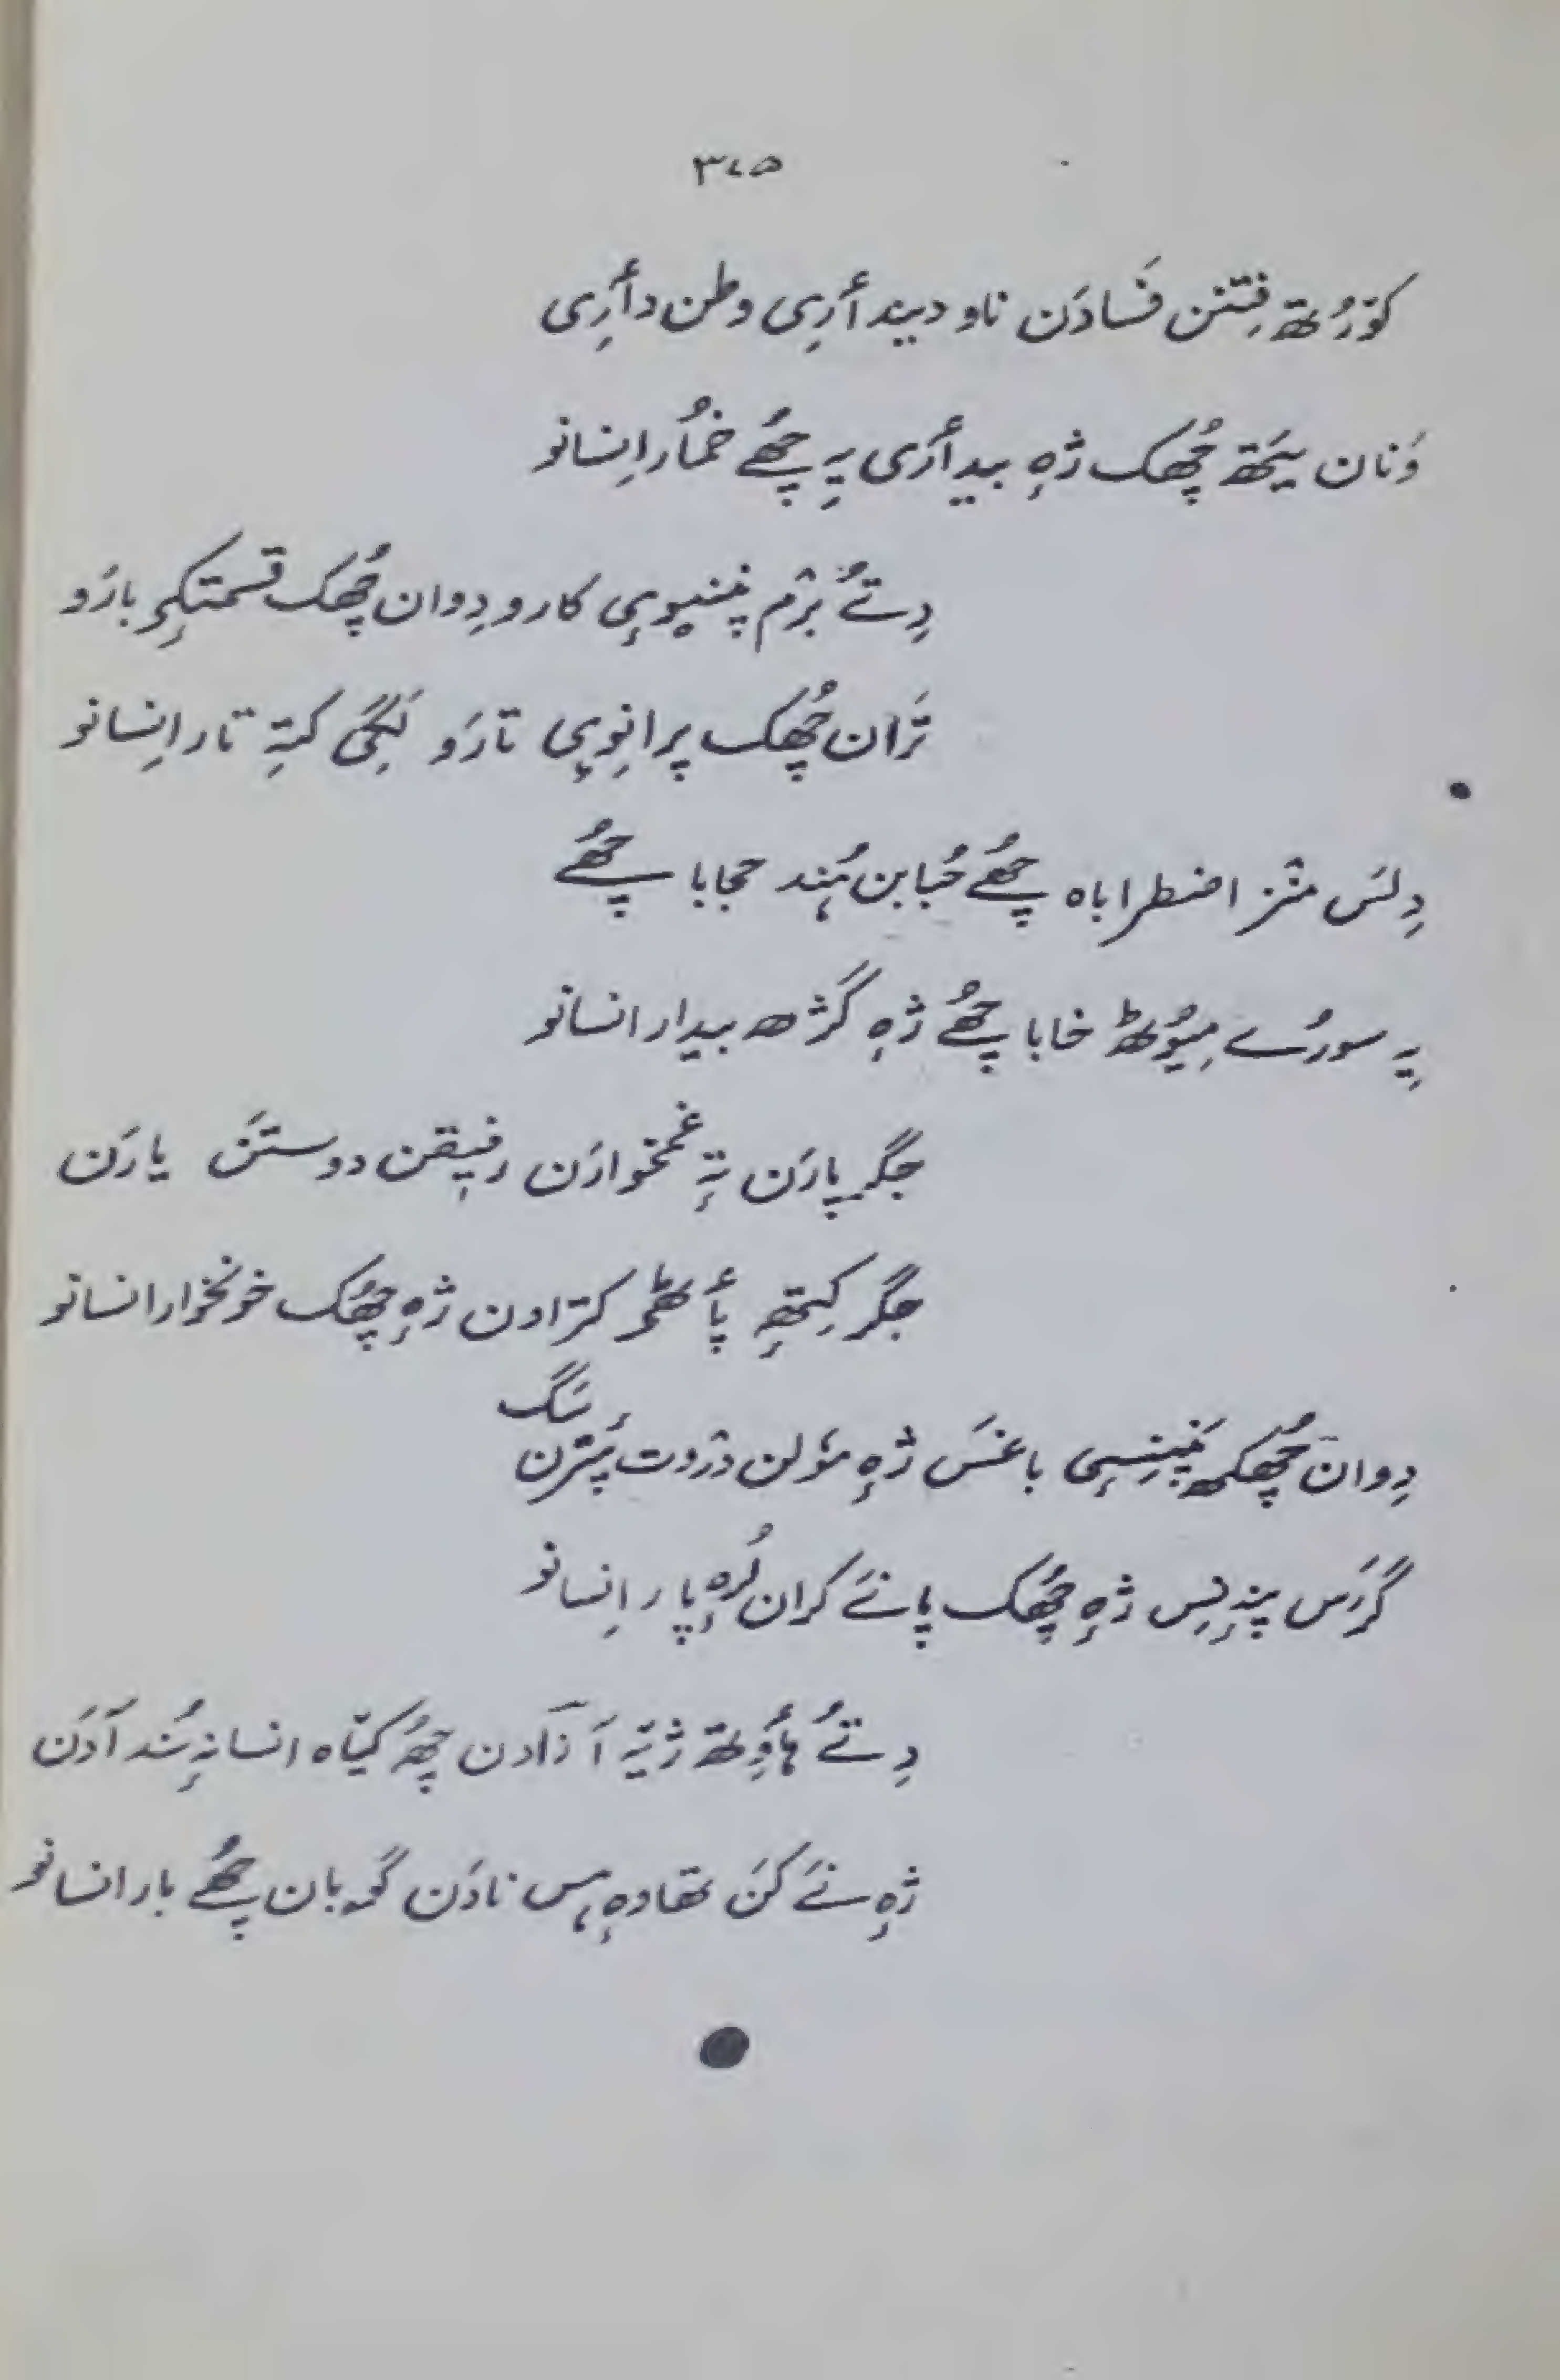 ۳۷۵
کوٚرُتھ فِتنن فَسادَن ناو دیندأرِی وطن دأرِی
وَنان یَتھ چُھک ژٕہ بیدأری یہِ چُھے خمُار اِنسانو
دِتُے بَرٛم پَننیوٕی کارو دِوان چُھک قسمتکِہ بارَو
تَران چُھک پرانِوٕی تارَو لَگی کتہِ تار اِنسانو
دِلسَ منٛز اضطراباہ چُھے حُبابن ہُند حجابا چُھے
یہِ سورُے مِیوٗٹھ خابا چُھے ژٕہ گَژھ بیدار انسانو
جگر پارَن تہٕ غمخوارَن رفیقن دوستَن یارَن
جگر کِتھٕ پأٹھۍ کترٛاون ژٕہ چھُک خونخوار انسانو
دِوان چُھکھ پَنِنسٕی باغسَ ژٕہ موٗلن درٛوت پَترٛن سٟگ
گَرَس پنہٕ نِس ژٕہ چُھک پانَے کران لُرٕہ پار اِنسانو
دِتُے ہأوِتھ ژیہّ آزادن چُھ کیّاہ انسانہٕ سُند آدَن
ژٕہ نَے کَن تھاوٕہ ہس نادَن گوبان چُھے بار انسانو